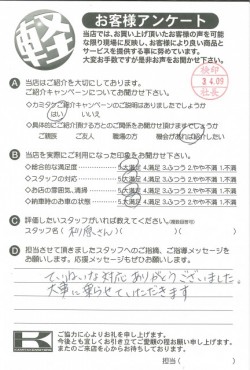 軽
お客様アンケート
当店では、お買い上げ頂いたお客様の声を可能
な限り現場に反映し、お客様により良い商品と
サービスを提供する事に努めています。
大変お手数ですが是非お声をお聞かせ下さい。
検印
4.09
社長
A 当店はご紹介を大切にしております。
ご紹介キャンペーンについてお聞かせ下さい。
◇カミタケご紹介キャンペーンのご説明はありましたでしょうか
はい いいえ
◇具体的にご紹介頂ける方とのご関係をお聞かせ頂けますでしょうか
ご親族 ご友人 職場の方 機会があれば紹介したい
B 当店を実際にご利用になった印象をお聞かせ下さい。
◇総合的な満足度 5.大満足 4.満足 3.ふつう 2.やや不満 1.不満
◇スタッフの対応 5.大満足 4.満足 3.ふつう 2.やや不満 1.不満
◇お店の雰囲気、清掃 5.大満足 4.満足 3.ふつう 2.やや不満 1.不満
◇納車時のお車の状態 5.大満足 4.満足 3.ふつう 2.やや不満 1.不満
C 評価したいスタッフがいれば教えてください。(複数回答可)
スタッフ名( さん )( )
D 担当させて頂きましたスタッフへのご指摘、ご指導メッセージを
お願いします。応援メッセージもぜひお願いします。
ていねいな対応ありがとうございました。
大事に乗らせていただきます
K
ご協力に心よりお礼を申し上げます。
今後とも宜しくお引き立てご愛顧の程お願い申し上げます。
またのご来店を心からお待ちしております。
担当( )